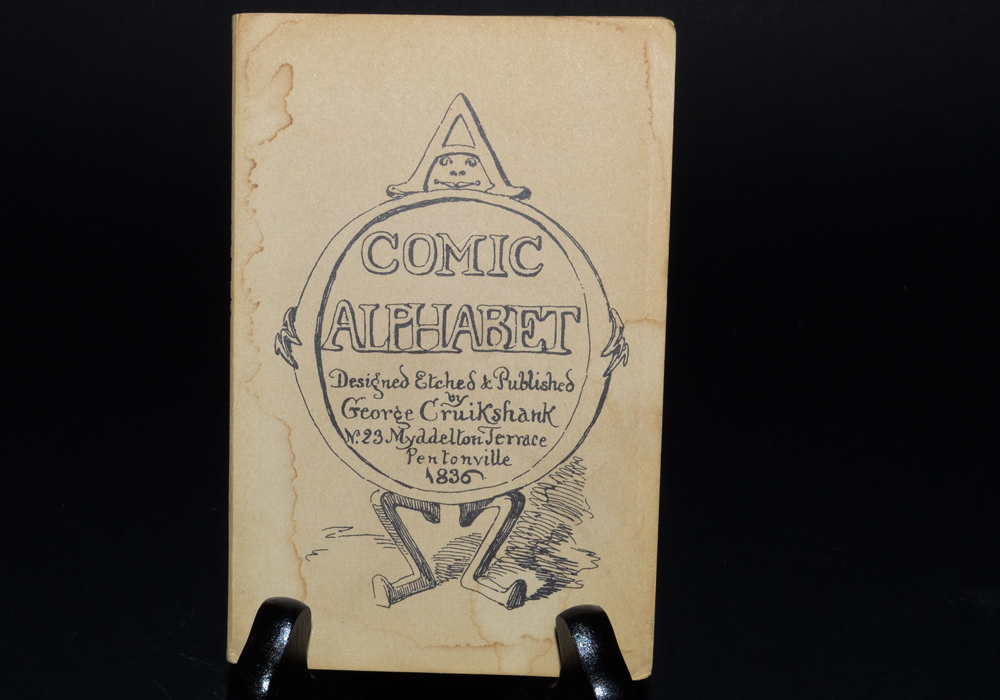 A
COMIC
ALPHABET
Designed Etched & Published
by
George Cruikshank
No. 23 Myddelton Terrace
Pentonville
1836